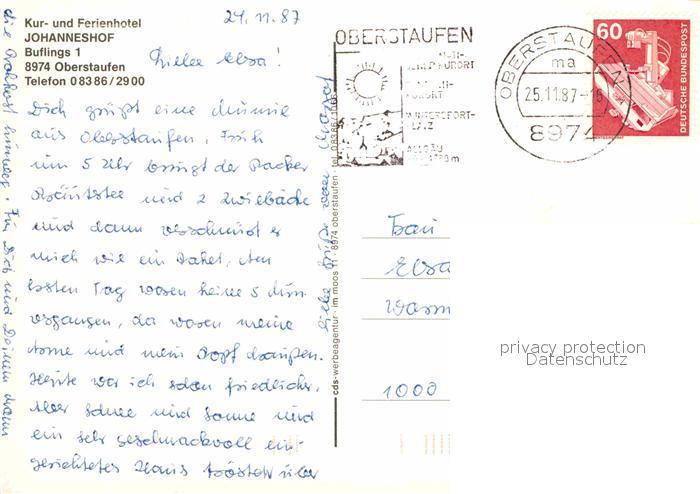 24.11.87
Kur- und Ferienhotel
JOHANNESHOF
Buflings 1
8974 Oberstaufen
Telefon 0 83 86 / 29 00
Liebe Elsa!
Dich grüßt eine Mumie
aus Oberstaufen. Früh
um 5 Uhr bringt der Packer
Kräutertee und 2 Zwiebäcke
und dann verschnürt er
mich wie ein Paket. Am
ersten Tag waren keine 5 Min.
vergangen, da waren meine
Arme und mein Kopf draußen.
Heute war ich schon friedlicher.
Aber Schnee und Sonne und
ein sehr geschmackvoll ein-
gerichtetes Haus trösten über
die Prothese hinweg. Für Dich und Deinen Mann
liebe Grüße von
cds-werbeagentur im moos 11 8974 oberstaufen tel. 08386/1166
OBERSTAUFEN
KURORT
KURORT
WINTERSPORT-
PLATZ
ALLGÄU
OBERSTAUFEN
ma
25.11.87-16
8974
60
DEUTSCHE BUNDESPOST
Frau
Elsa
Warm
1000
privacy protection
Datenschutz